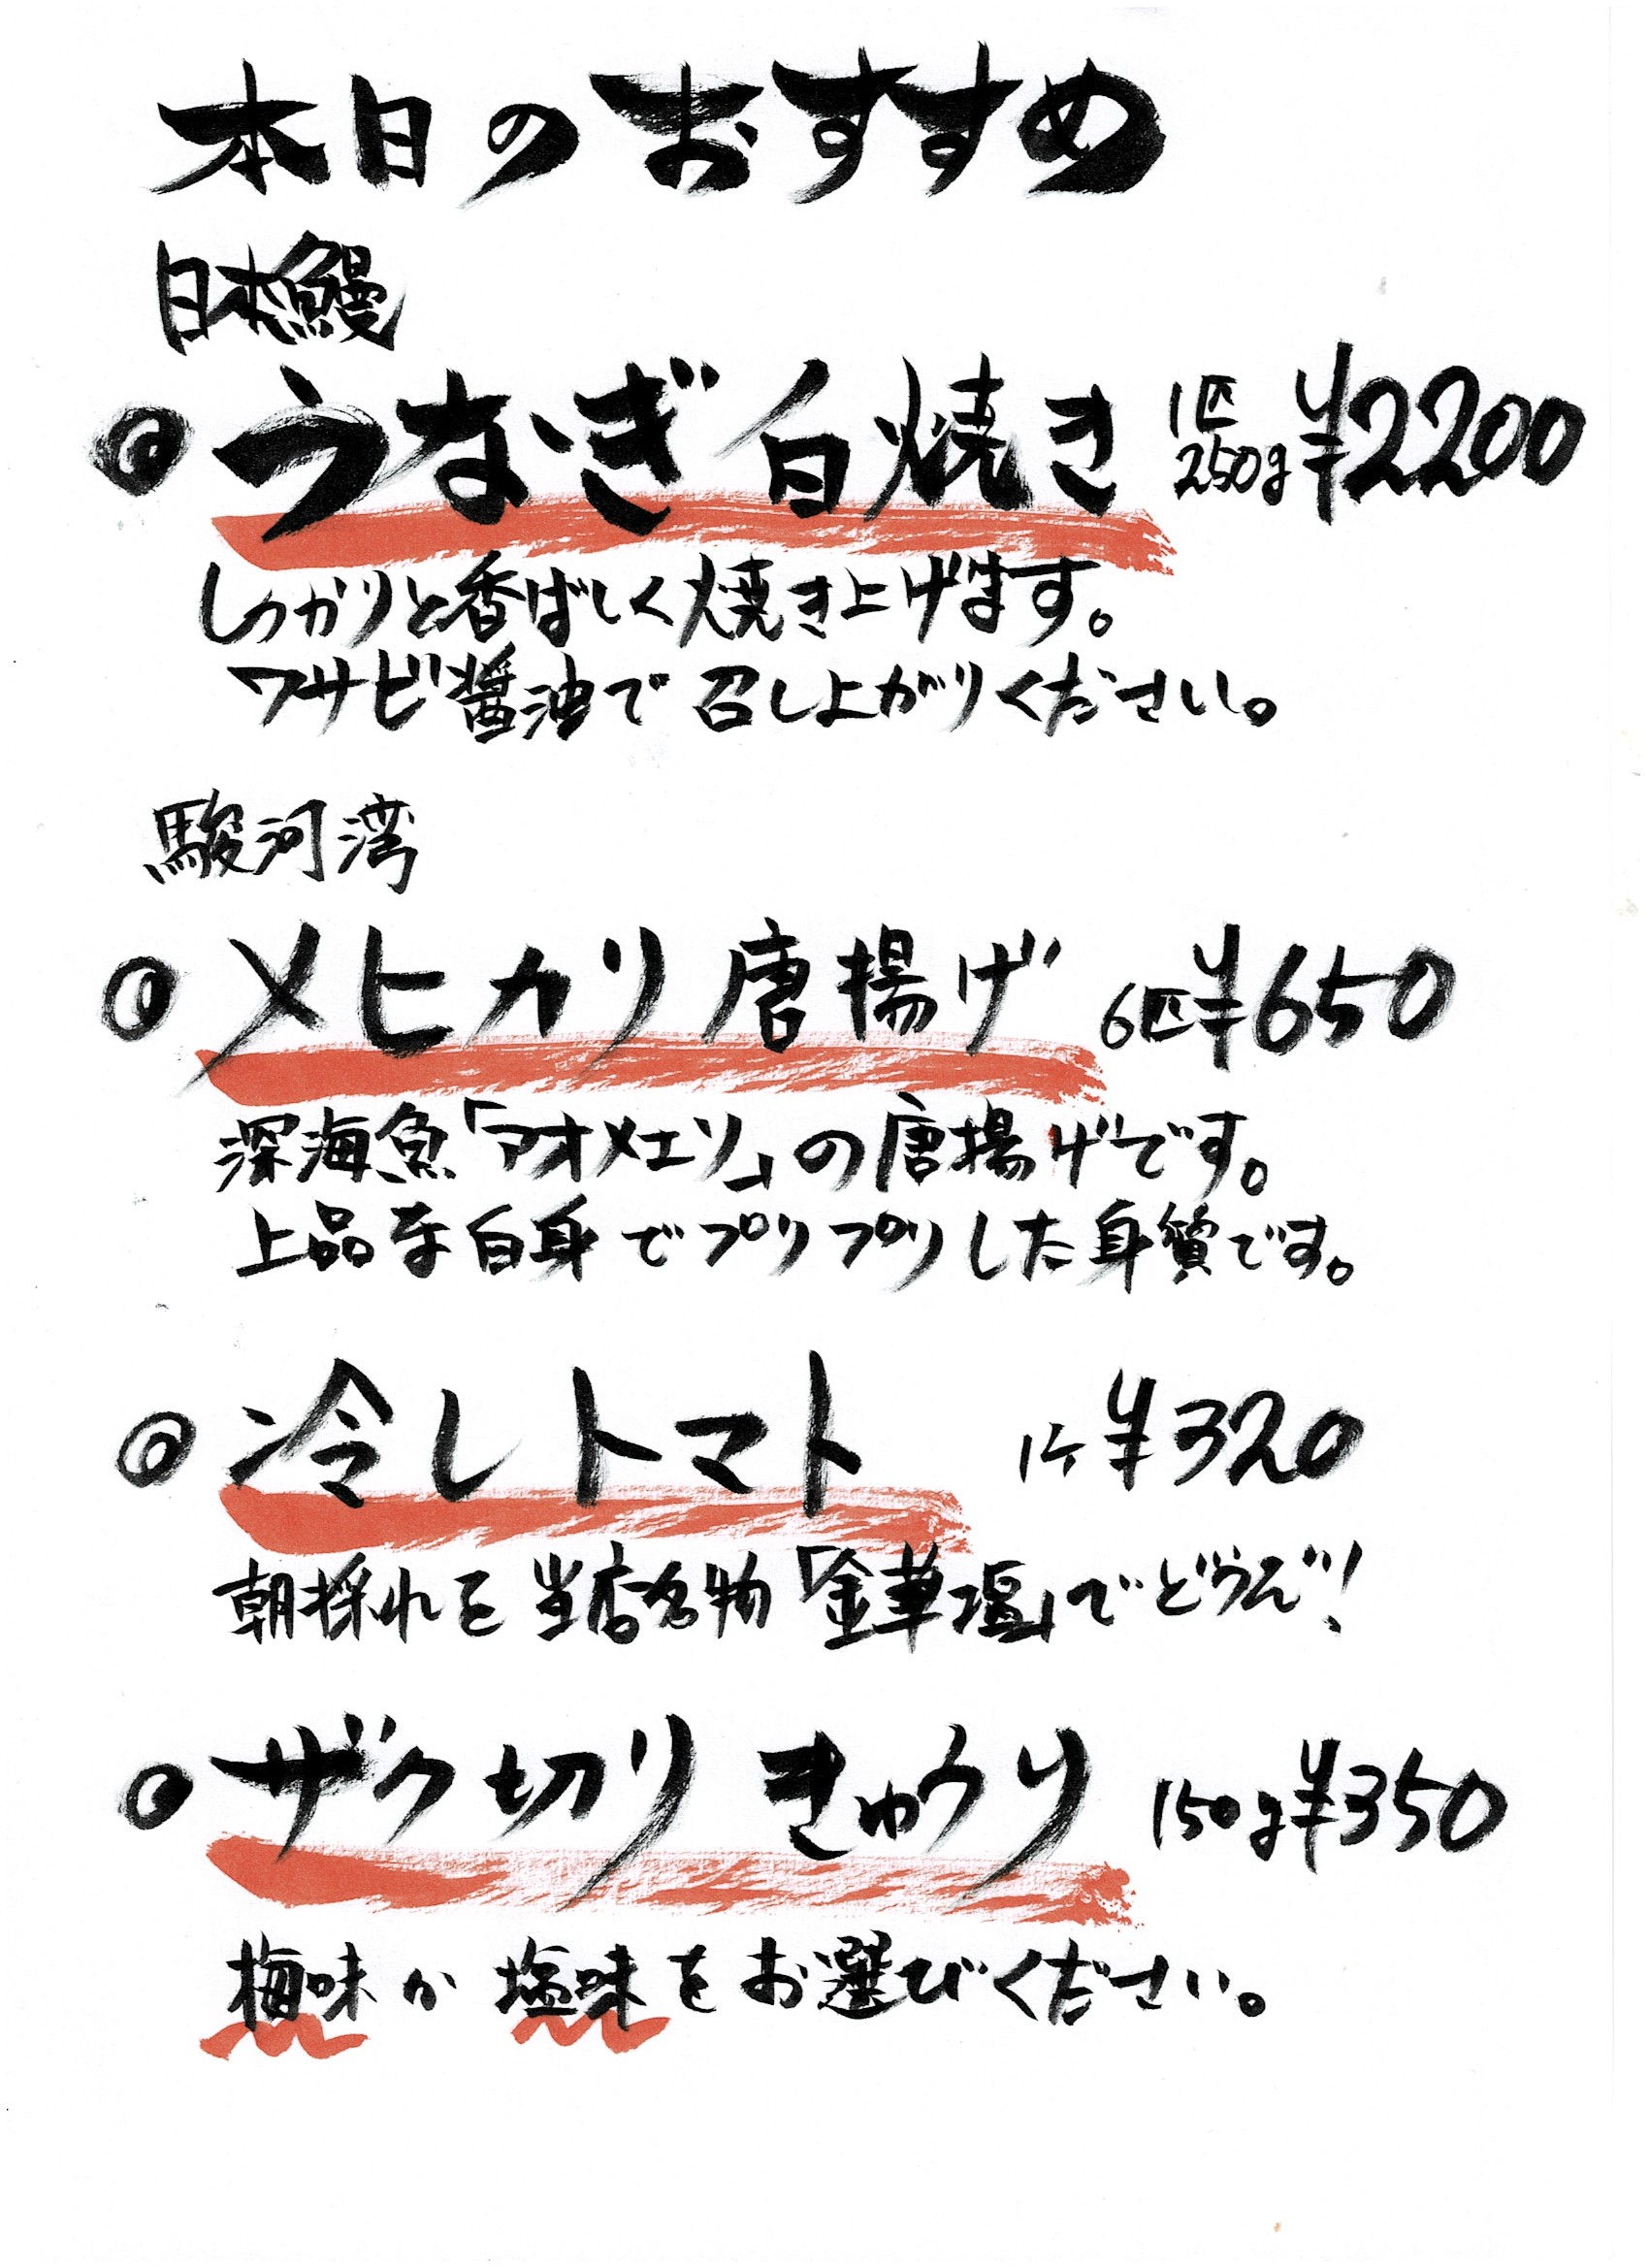 本日のおすすめ
日本鰻
◎うなぎ白焼き 1匹 250g ¥2200
しっかりと香ばしく焼き上げます。
ワサビ醤油で召し上がりください。
駿河湾
◎メヒカリ唐揚げ 6匹 ¥650
深海魚「アオメエソ」の唐揚げです。
上品な白身でプリプリした身質です。
◎冷しトマト 1ケ ¥320
朝採れを当店名物「金華塩」でどうぞ!
◎ザク切りきゅうり 150g ¥350
梅味か塩味をお選びください。